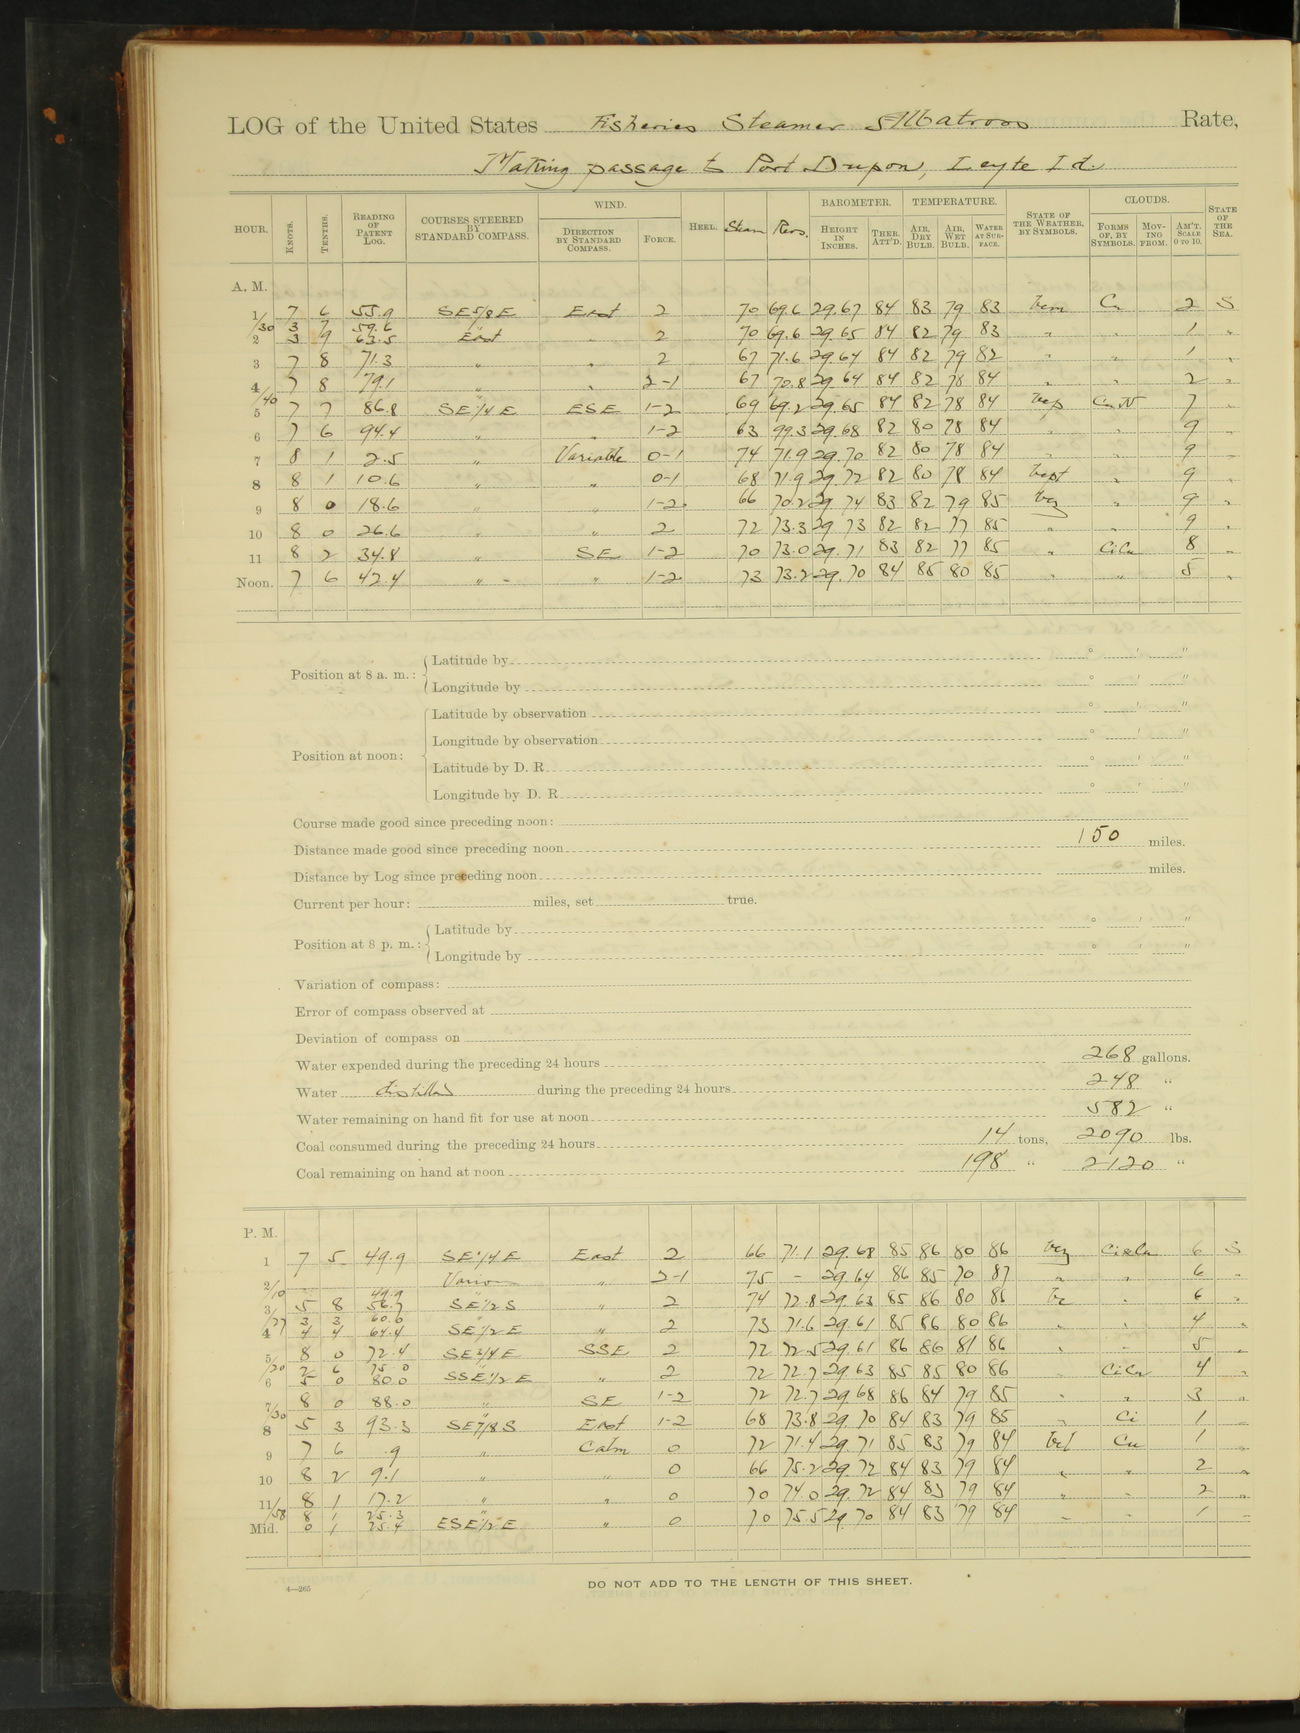 LOG of the United States Fisheries Steamer Albatross Rate,
Making passage to Port Dupon, Leyte Id.
HOUR. KNOTS. TENTHS. READING OF PATENT LOG. COURSES STEERED BY STANDARD COMPASS. WIND. DIRECTION BY STANDARD COMPASS. FORCE. HEEL. Steam Revs. BAROMETER. HEIGHT IN INCHES. THER. ATT'D. TEMPERATURE. AIR, DRY BULB. AIR, WET BULB. WATER AT SURFACE. STATE OF THE WEATHER, BY SYMBOLS. CLOUDS. FORMS OF, BY SYMBOLS. MOVING FROM. AM'T. SCALE 0 TO 10. STATE OF THE SEA.
A. M.
1 7 6 55.9 SE 5/8 E East 2 70 69.6 29.67 84 83 79 83 Cu 2 S
/30 3 7 59.6
2 3 9 63.5 East " 2 70 69.6 29.65 84 82 79 83 " " 1 "
3 7 8 71.3 " " 2 67 71.6 29.64 84 82 79 82 " " 1 "
4 7 8 79.1 " " 2-1 67 70.8 29.64 84 82 78 84 " " 2 "
/40
5 7 7 86.8 SE 1/4 E ESE 1-2 69 69.2 29.65 84 82 78 84 bcp Cu N 7 "
6 7 6 94.4 " " 1-2 63 99.3 29.68 82 80 78 84 " " 9 "
7 8 1 2.5 " Variable 0-1 74 71.9 29.70 82 80 78 84 " " 9 "
8 8 1 10.6 " " 0-1 68 71.9 29.72 82 80 78 84 bcpt " 9 "
9 8 0 18.6 " " 1-2 66 70.2 29.74 83 82 79 85 bcz " 9 "
10 8 0 26.6 " " 2 72 73.3 29.73 82 82 77 85 " " 9 "
11 8 2 34.8 " SE 1-2 70 73.0 29.71 83 82 77 85 " Ci Cu 8 "
Noon. 7 6 42.4 " " 1-2 73 73.2 29.70 84 85 80 85 " " 5 "
Position at 8 a. m.: Latitude by ° ' "
Longitude by ° ' "
Position at noon: Latitude by observation ° ' "
Longitude by observation ° ' "
Latitude by D. R. ° ' "
Longitude by D. R. ° ' "
Course made good since preceding noon:
Distance made good since preceding noon 150 miles.
Distance by Log since preceding noon miles.
Current per hour: miles, set true.
Position at 8 p. m.: Latitude by ° ' "
Longitude by ° ' "
Variation of compass:
Error of compass observed at
Deviation of compass on
Water expended during the preceding 24 hours 268 gallons.
Water distilled during the preceding 24 hours 248 "
Water remaining on hand fit for use at noon 582 "
Coal consumed during the preceding 24 hours 14 tons, 2090 lbs.
Coal remaining on hand at noon 198 " 2120 "
P. M.
1 7 5 49.9 SE 1/4 E East 2 66 71.1 29.68 85 86 80 86 bcz Ci & Cu 6 S
2 - - Various " 2-1 75 - 29.64 86 85 70 87 " " 6 "
/10 49.9
3 5 8 56.7 SE 1/2 S " 2 74 72.8 29.63 85 86 80 86 bc " 6 "
/27 3 3 60.0
4 4 4 64.4 SE 1/2 E " 2 73 71.6 29.61 85 86 80 86 " " 4 "
5 8 0 72.4 SE 3/4 E SSE 2 72 72.5 29.61 86 86 81 86 " " 5 "
/20 2 6 75.0
6 5 0 80.0 SSE 1/2 E " 2 72 72.7 29.63 85 85 80 86 " Ci Cu 4 "
7 8 0 88.0 " SE 1-2 72 72.7 29.68 86 84 79 85 " " 3 "
/30
8 5 3 93.3 SE 7/8 S East 1-2 68 73.8 29.70 84 83 79 85 " Ci 1 "
9 7 6 .9 " Calm 0 72 71.4 29.71 85 83 79 84 bcl Cu 1 "
10 8 2 9.1 " " 0 66 75.2 29.72 84 83 79 84 " " 2 "
11 8 1 17.2 " " 0 70 74.0 29.72 84 83 79 84 " " 2 "
/58 8 1 25.3
Mid. 0 1 25.4 ESE 1/2 E " 0 70 75.5 29.70 84 83 79 84 " " 1 "
4—265
DO NOT ADD TO THE LENGTH OF THIS SHEET.